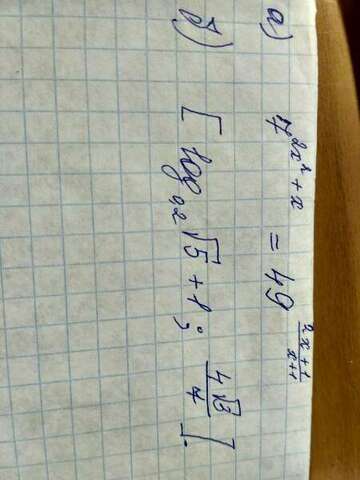 а) 7^{2x²+x} = 49^{\frac{2x+1}{x+1}}
б) [log_{0,2} √5 + 1; \frac{4√3}{7}].